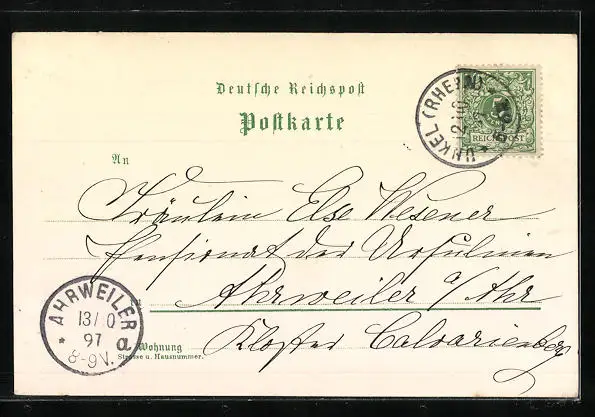 Deutsche Reichspost
Postkarte
REICHSPOST
UNKEL (RHEIN)
12/10
An
Fräulein Else Wesener
Pensionat der Ursulinen
Ahrweiler a/Ahr
Kloster Calvarienberg
AHRWEILER
13/10
97
* a
8-9V.
Wohnung
Strasse u. Hausnummer.